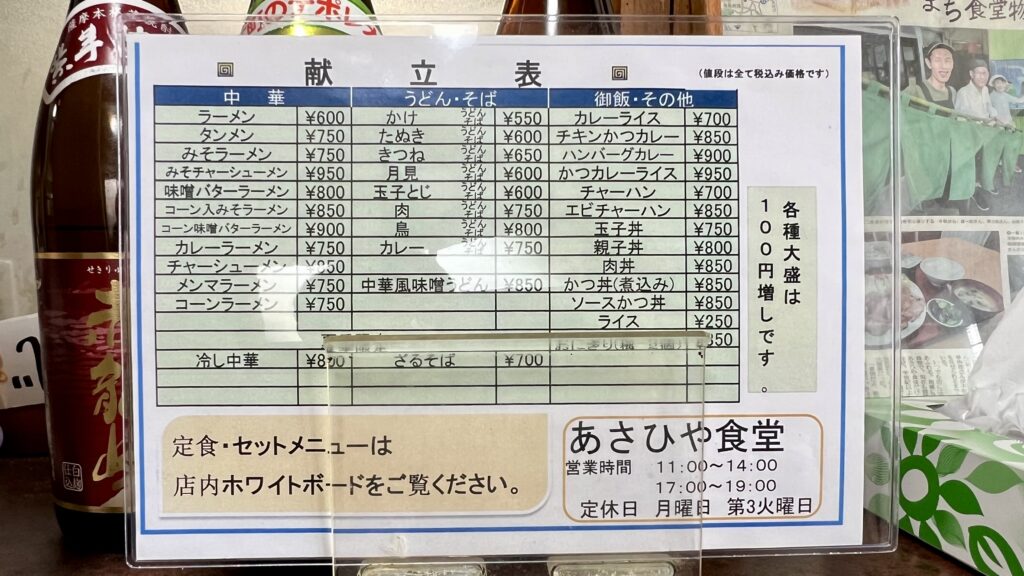 献立表
(値段は全て税込み価格です)
中華 うどん・そば 御飯・その他
ラーメン ¥600 かけ うどん そば ¥550 カレーライス ¥700
タンメン ¥750 たぬき うどん そば ¥600 チキンかつカレー ¥850
みそラーメン ¥750 きつね うどん そば ¥650 ハンバーグカレー ¥900
みそチャーシューメン ¥950 月見 うどん そば ¥600 かつカレーライス ¥950
味噌バターラーメン ¥800 玉子とじ うどん そば ¥600 チャーハン ¥700
コーン入みそラーメン ¥850 肉 うどん そば ¥750 エビチャーハン ¥850
コーン味噌バターラーメン ¥900 鳥 うどん そば ¥800 玉子丼 ¥750
カレーラーメン ¥750 カレー うどん そば ¥750 親子丼 ¥800
チャーシューメン ¥850 肉丼 ¥850
メンマラーメン ¥750 中華風味噌うどん ¥850 かつ丼(煮込み) ¥850
コーンラーメン ¥750 ソースかつ丼 ¥850
ライス ¥250
冷し中華 ざるそば ¥700
各種大盛は
100円増しです。
定食・セットメニューは
店内ホワイトボードをご覧ください。
あさひや食堂
営業時間 11:00~14:00
17:00~19:00
定休日 月曜日 第3火曜日
まち食堂物